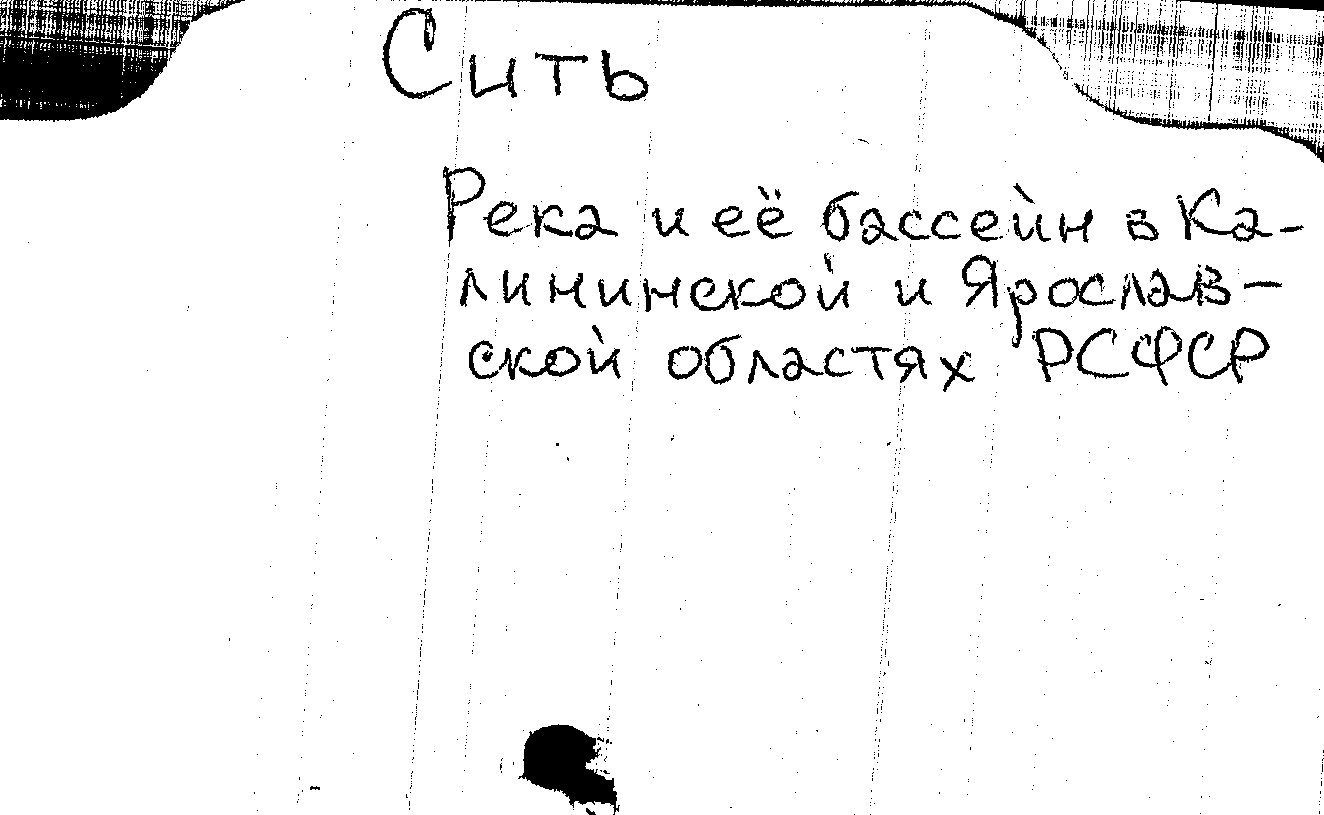 Сить
Река и её бассейн в Ка-
лининской и Ярослав-
ской областях РСФСР